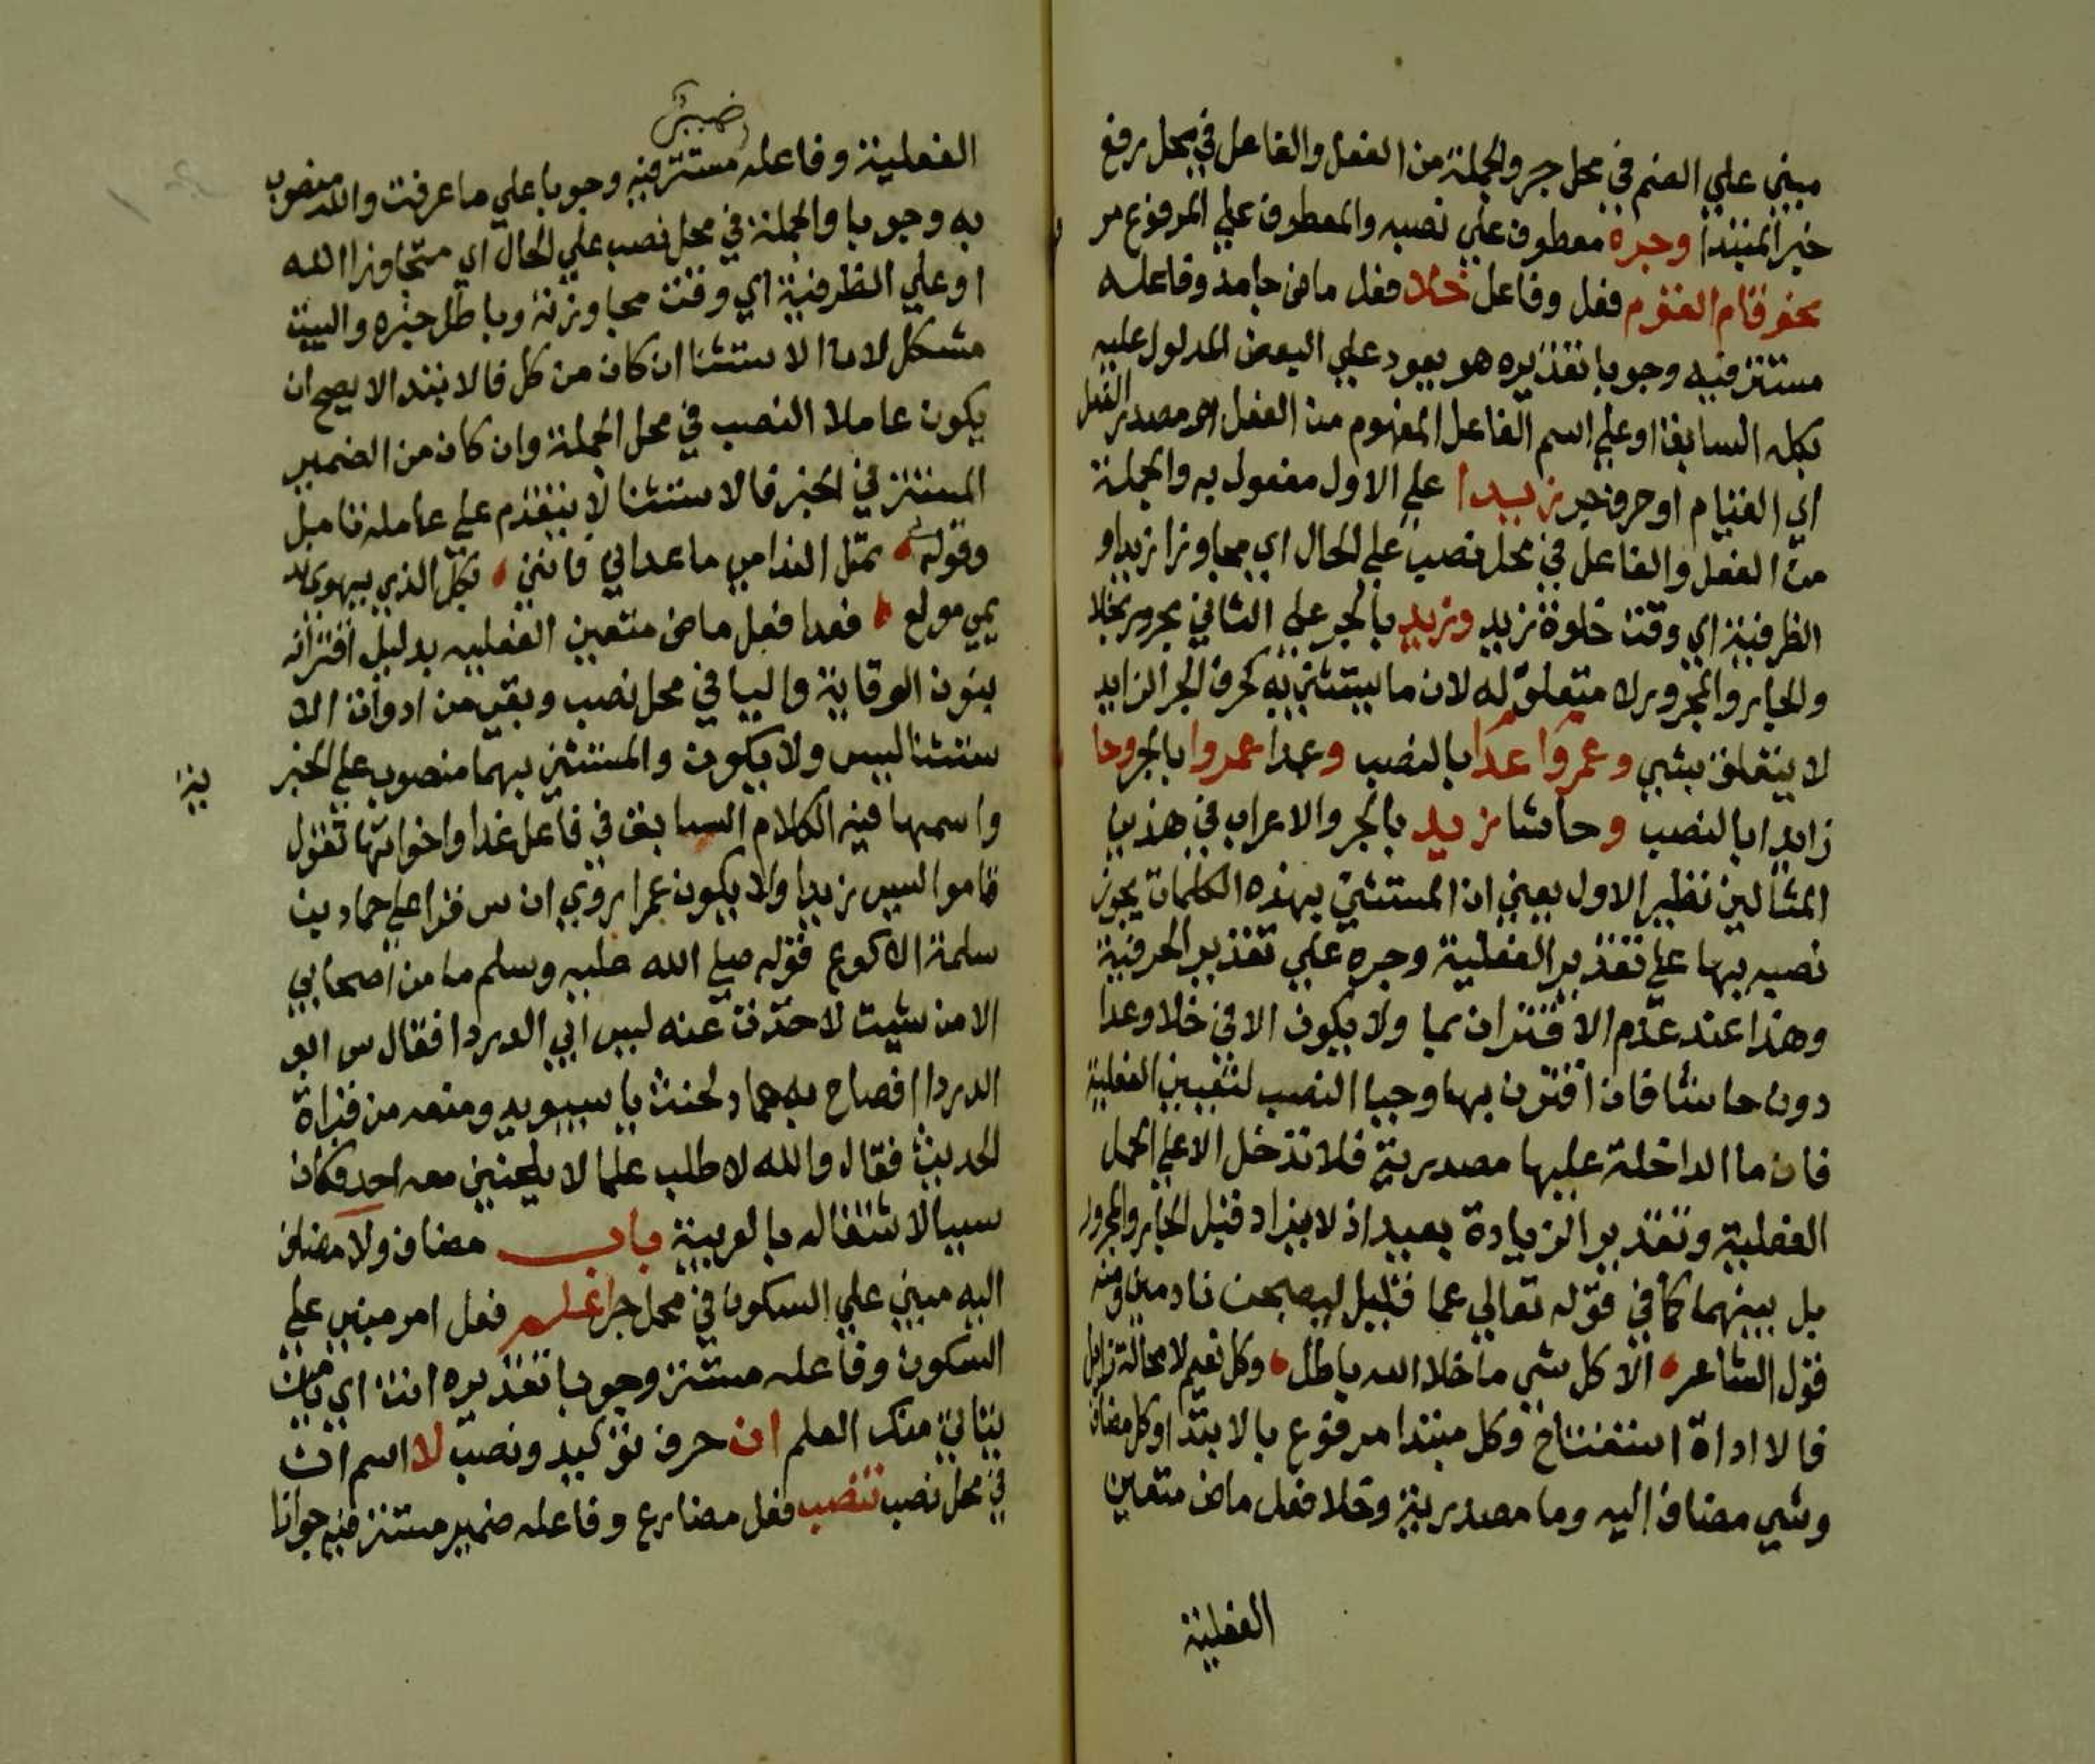 مبني علي الضم في محل جر والجملة من الفعل والفاعل في محل رفع
خبر المبتدا وجره معطوف علي نصبه والمعطوف علي المرفوع مر
نحو قام القوم فعل وفاعل خلا فعل ماض جامد وفاعله
مستتر فيه وجوبا تقديره هو يعود علي البعض المدلول عليه
بكله السابق او علي اسم الفاعل المفهوم من الفعل او مصدر الفعل
اي القيام او حرف جر زيدا علي الاول مفعول به والجملة
من الفعل والفاعل في محل نصب علي الحال اي مجاوزا زيدا او
الظرفية اي وقت خلوة زيد وزيد بالجر علي الثاني مجرور بخلا
والجار والمجرور لا متعلق له لان ما يستثني به كحرف الجر الزايد
لا يتعلق بشي وعمروا عدا بالنصب وعدا عمروا بالجر وحا
زايدا بالنصب وحاشا زيد بالجر والاعراب في هذين
المثالين نظير الاول يعني ان المستثني بهذه الكلمات يجوز
نصبه بها علي تقدير الفعلية وجره علي تقدير الحرفية
وهذا عند عدم الاقتران بما ولا يكون الا في خلا وعدا
دون حاشا فان اقترن بها وجبا النصب لتعيين الفعلية
فان ما الداخلة عليها مصدرية فلا تدخل الا علي الجمل
الفعلية وتقدير الزيادة بعيد اذ لا يزاد قبل الجار والمجرور
بل بينهما كما في قوله تعالي عما قليل ليصبحن نادمين ومنه
قول الشاعر الا كل شي ما خلا الله باطل وكل نعيم لا محالة زايل
فالا اداة استفتاح وكل مبتدا مرفوع بالابتدا وكل مضاف
وشي مضاف اليه وما مصدرية وخلا فعل ماض متعين
الفعلية
الفعلية وفاعله مستتر فيه وجوبا علي ما عرفت والله منصوب
به وجوبا والجملة في محل نصب علي الحال اي متجاوزا الله
او علي الظرفية اي وقت مجاوزته وباطل خبره والبيت
مشكل لان الاستثنا ان كان من كل فالابتدا لا يصح ان
يكون عاملا النصب في محل الجملة وان كان من الضمير
المستتر في الخبر فالاستثنا لا يتقدم علي عامله تامل
وقوله تمل الندامي ما عداني فانني بكل الذي يهوي
يمي مولع فعدا فعل ماض متعين الفعليه بدليل اقترانه
بنون الوقاية واليا في محل نصب وبقي من ادوات الا
ستثنا ليس ولا يكون والمستثني بهما منصوب علي الخبر
ية
واسمها فيه الكلام السابق في فاعل عدا واخواتها تقول
قاموا ليس زيدا ولا يكون عمرا روي ان س قرا علي حماد بن
سلمة الاكوع قوله صلي الله عليه وسلم ما من اصحابي
الا من شيت لاحذت عنه ليس ابي الدردا فقال س ابو
الدردا فصاح به حماد لحنت يا سيبويه ومنعه من قراة
الحديث فقال والله لاطلب علما لا يلحنني معه احد فكان
سببا لاشتغاله بالعربية باب مضاف ولا مضاف
اليه مبني علي السكون في محل جر اعلم فعل امر مبني علي
السكون وفاعله مستتر وجوبا تقديره انت اي يا من
يتاتي منك العلم ان حرف توكيد ونصب لا اسم ان
في محل نصب تنصب فعل مضارع وفاعله ضمير مستتر فيه جوازا